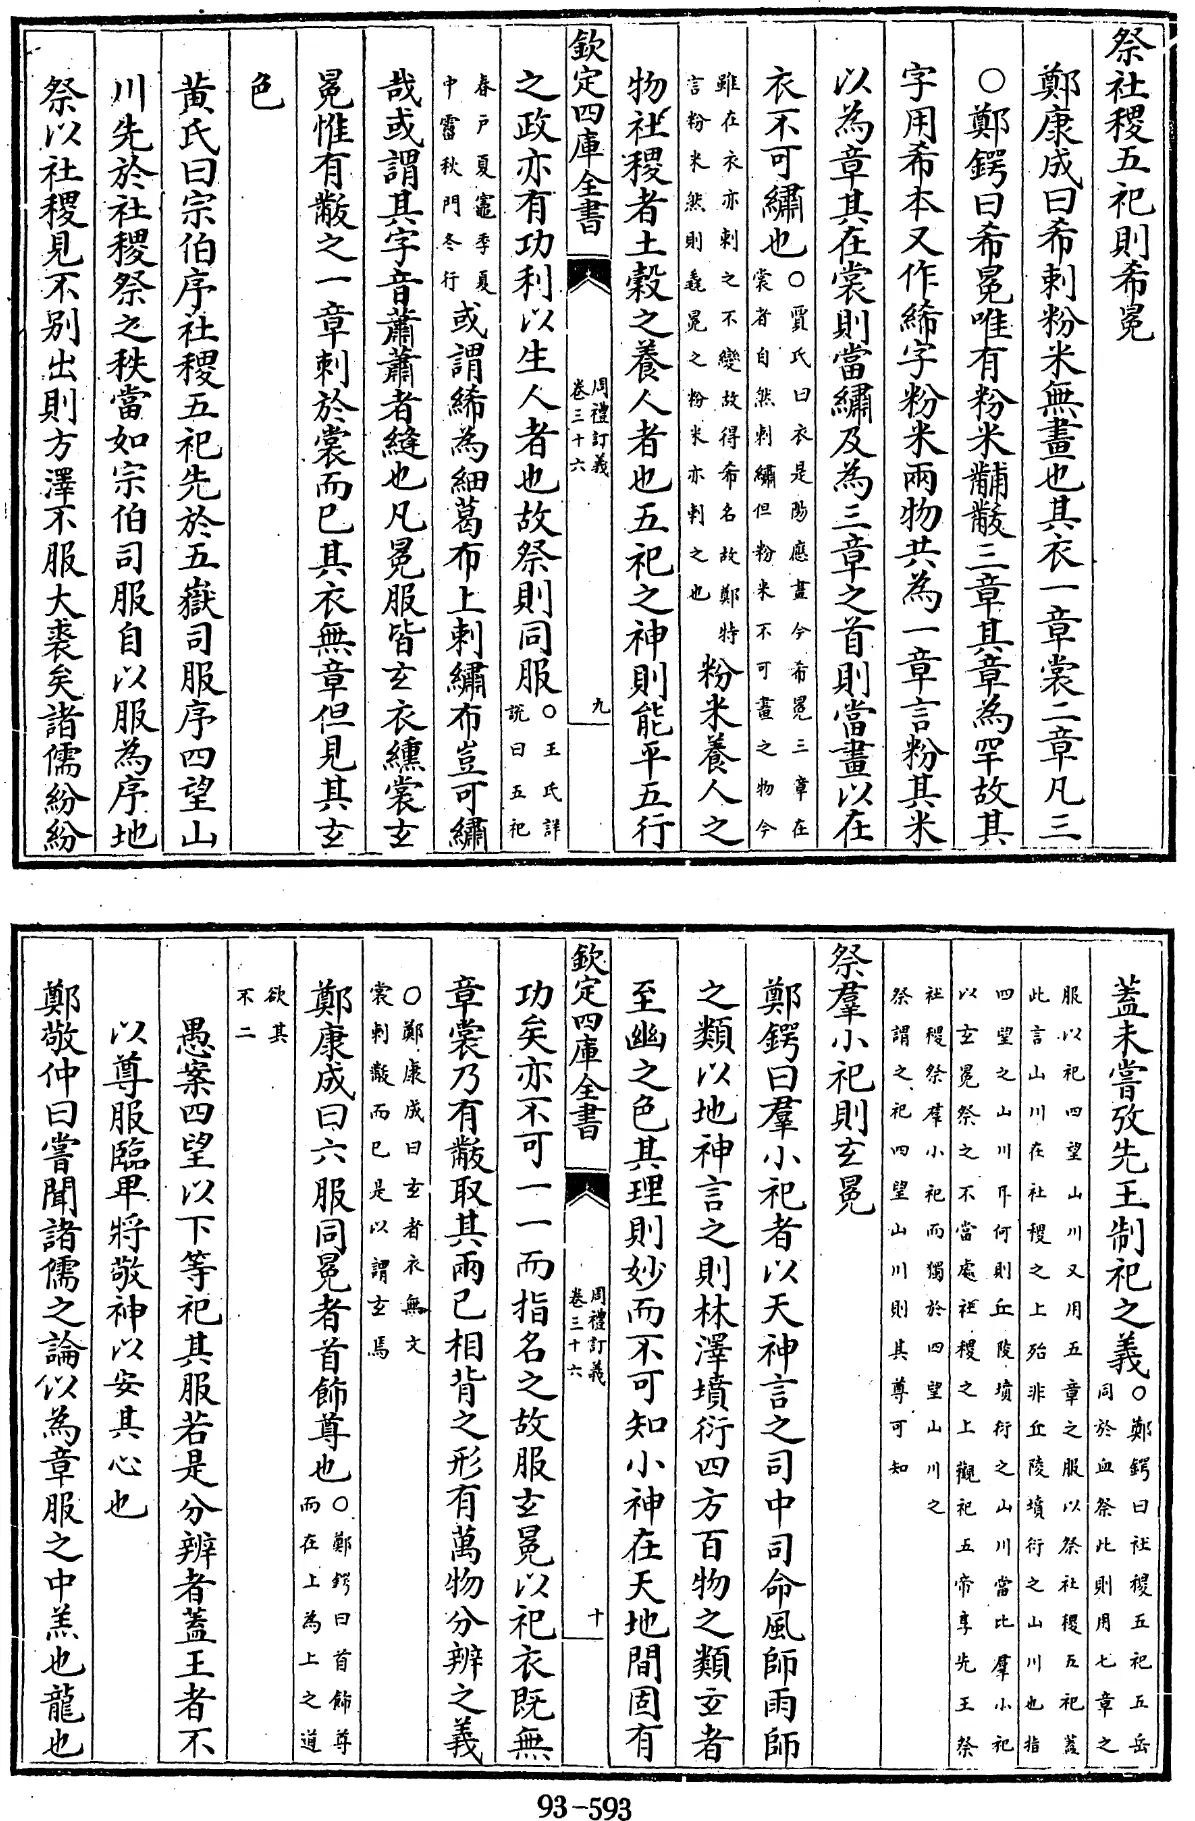 祭社稷五祀則希冕
鄭康成曰希刺粉米無畫也其衣一章裳二章凡三
○鄭鍔曰希冕唯有粉米黼黻三章其章為罕故其
字用希本又作絺字粉米兩物共為一章言粉其米
以為章其在裳則當繡及為三章之首則當畫以在
衣不可繡也○賈氏曰衣是陽應畫今希冕三章在
裳者自然刺繡但粉米不可畫之物今
雖在衣亦刺之不變故得希名故鄭特
言粉米然則毳冕之粉米亦刺之也
粉米養人之
物社稷者土穀之養人者也五祀之神則能平五行
欽定四庫全書
周禮訂義
卷三十六
九
之政亦有功利以生人者也故祭則同服○王氏詳
說曰五祀
春戶夏竈季夏
中霤秋門冬行
或謂絺為細葛布上刺繡布豈可繡
哉或謂其字音黹黹者縫也凡冕服皆玄衣纁裳玄
冕惟有黻之一章刺於裳而已其衣無章但見其玄
色
黃氏曰宗伯序社稷五祀先於五嶽司服序四望山
川先於社稷祭之秩當如宗伯司服自以服為序地
祭以社稷見不別出則方澤不服大裘矣諸儒紛紛
蓋未嘗攷先王制祀之義○鄭鍔曰社稷五祀五岳
同於血祭此則用七章之
服以祀四望山川又用五章之服以祭社稷五祀蓋
此言山川在社稷之上殆非丘陵墳衍之山川也指
四望之山川耳何則丘陵墳衍之山川當比羣小祀
以玄冕祭之不當處社稷之上觀祀五帝享先王祭
社稷祭羣小祀而獨於四望山川之
祭謂之祀四望山川則其尊可知
祭羣小祀則玄冕
鄭鍔曰羣小祀者以天神言之司中司命風師雨師
之類以地神言之則林澤墳衍四方百物之類玄者
至幽之色其理則妙而不可知小神在天地間固有
欽定四庫全書
周禮訂義
卷三十六
十
功矣亦不可一一而指名之故服玄冕以祀衣既無
章裳乃有黻取其兩已相背之形有萬物分辨之義
○鄭康成曰玄者衣無文
裳刺黻而已是以謂玄焉
鄭康成曰六服同冕者首飾尊也○鄭鍔曰首飾尊
而在上為上之道
欲其
不二
愚案四望以下等祀其服若是分辨者蓋王者不
以尊服臨卑將敬神以安其心也
鄭敬仲曰嘗聞諸儒之論以為章服之中羔也龍也
93-593